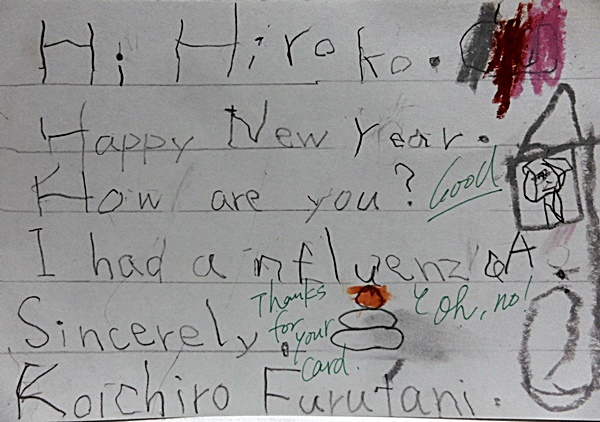 Hi Hiroko.
Happy New Year.
How are you? Good
I had a influenzaA.
Oh, no!
Thanks for your card.
Sincerely,
Koichiro Furutani.